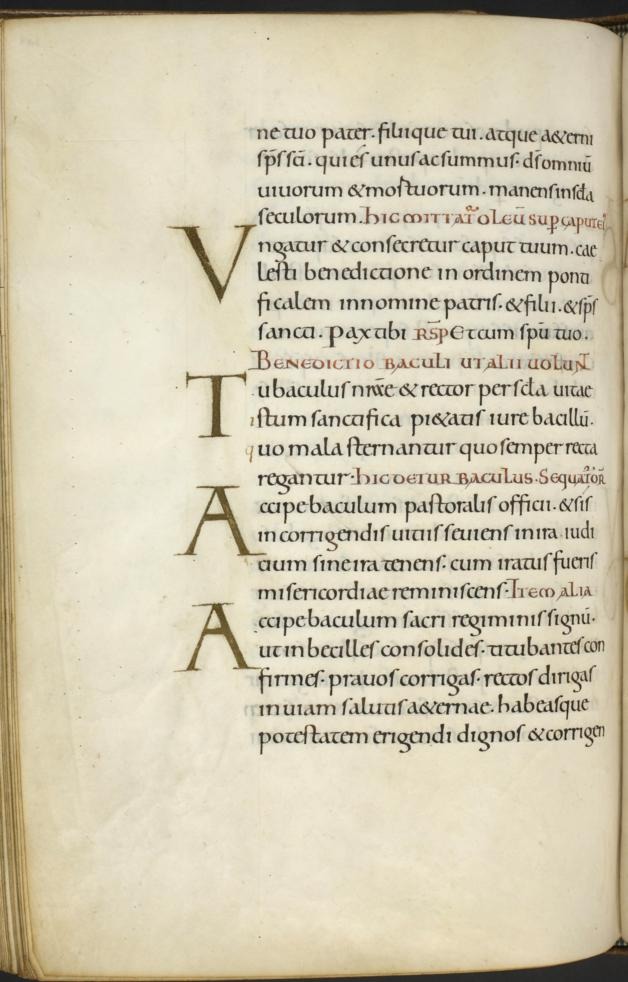 ne tuo pater. filiique tui. atque a&erni
sp̄s sc̄i. qui es unus ac summus. ds̄ omniū
uiuorum & mortuorum. manens in scl̄a
seculorum. hic mittat᷑ oleū sup̱ caput ei᷒
Vngatur & consecretur caput tuum. cae
lesti benedictione in ordinem ponti
ficalem in nomine patris. & filii. & sp̄s
sancti. Pax tibi RSP̄ Et cum sp̄u tuo.
BENEDICTIO BACULI UT ALII UOLUN̄T
Tu baculus nr̄ae & rector per scl̄a uitae
istum sanctifica pi&atis iure bacillū.
quo mala sternantur quo semper recta
regantur. hic DETUR BACULUS. Sequat᷑ or̄
Accipe baculum pastoralis officii. & sis
in corrigendis uitiis seuiens in ira. iudi
tium sine ira tenens. cum iratus fueris
misericordiae reminiscens. Item alia
Accipe baculum sacri regiminis signū.
ut inbecilles consolides. titubantes con
firmes. prauos corrigas. rectos dirigas
in uiam salutis a&ernae. habeasque
potestatem erigendi dignos & corrigen